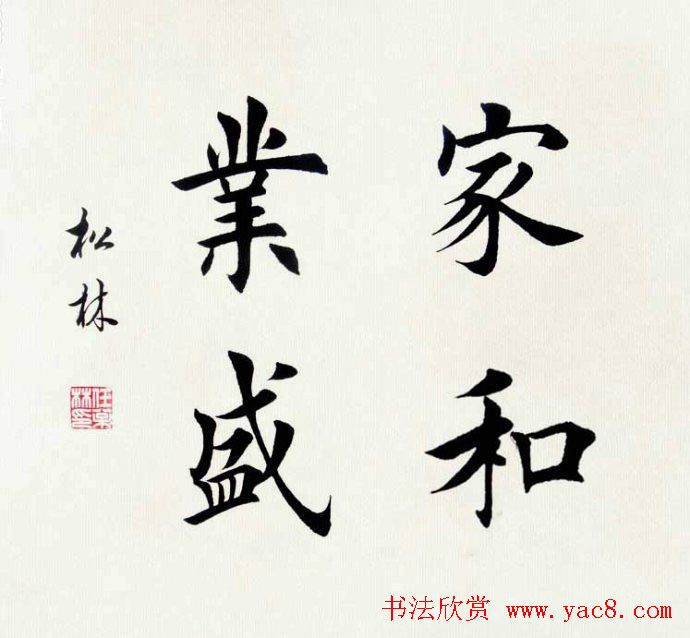 家和
業盛
松林
书法欣赏 www.yac8.com